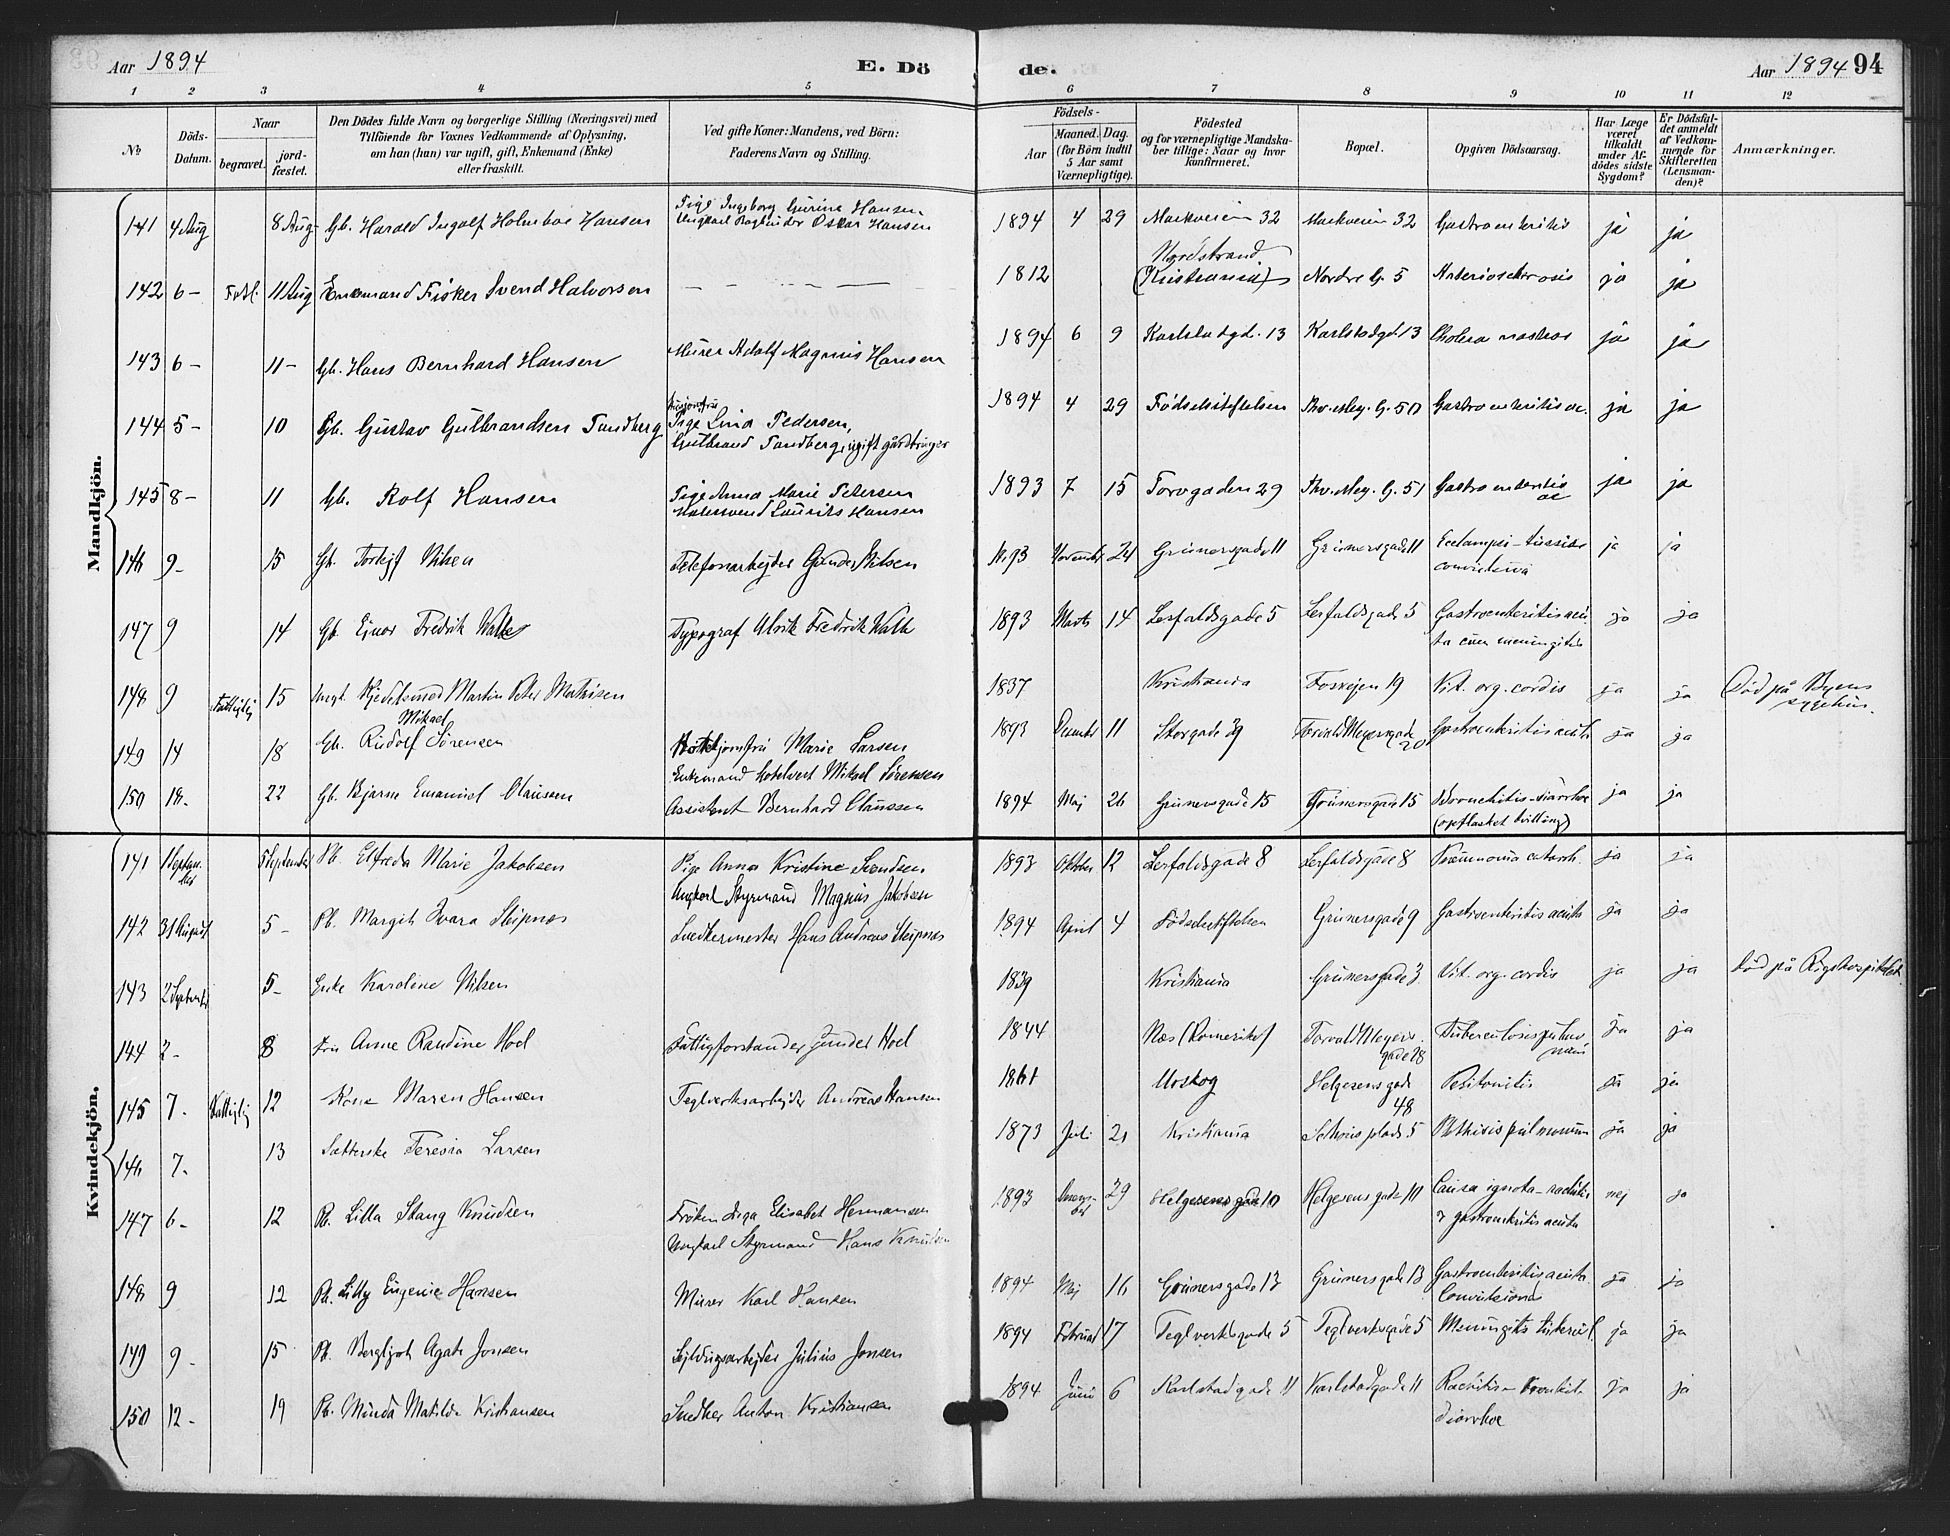 Aar 1894
E. Dö
de.
Aar 1894 94
1 2 3 4 5 6 7 8 9 10 11 12
№
Döds-
Datum.
Naar
begravet.
jord-
fæstet.
Den Dödes fulde Navn og borgerlige Stilling (Næringsvei) med
Tilföiende for Voxnes Vedkommende af Oplysning,
om han (hun) var ugift, gift, Enkemand (Enke)
eller fraskilt.
Ved gifte Koner: Mandens, ved Börn:
Faderens Navn og Stilling.
Födsels-
Aar
Maaned. Dag.
(for Börn indtil
5 Aar samt
Værnepligtige).
Födested
og for værnepligtige Mandska-
ber tillige: Naar og hvor
konfirmeret.
Bopæl.
Opgiven Dödsaarsag.
Har Læge
været
tilkaldt
under Af-
dödes sidste
Sygdom?
Er Dödsfal-
det anmeldt
af Vedkom-
mende for
Skifteretten
(Lensman-
den)?
Anmærkninger.
Mandkjön.
141 4 Aug 8 Aug Gb. Harald Ingolf Holmboe Hansen Pige Ingeborg Gurine Hansen
Ungkarl Oskar Hansen 1894 4 29 Markveien 32 Markveien 32 Gastroenteritis ja ja
142 6 – 11 Aug Enkemand Fisker Svend Halvorsen – – – – 1812 Nordstrand
(Kristiania) Nordre G. 5 Arteriosclerosis ja ja
143 6 – 11 – Gb. Hans Bernhard Hansen Murer Adolf Magnus Hansen 1894 6 9 Karlstadgd. 13 Karlstadgd. 13 Cholera nostras ja ja
144 5 – 10 Gb. Gustav Gulbrandsen Sandberg Pige Lina Pedersen,
Gulbrand Sandberg, ugift gårdbruger 1894 4 29 Fødselsstiftelsen Thv. Mey. G. 50 Gastroenteritis ac. ja ja
145 8 – 11 Gb. Rolf Hansen Pige Anna Marie Petersen
Malersvend Laurits Hansen 1893 7 15 Torvgaden 29 Thv. Mey. G. 51 Gastroenteritis
ac ja ja
146 9 – 15 Gb. Torleif Nilsen Telefonarbejder Gunder Nilsen 1893 November 24 Grünersgade 11 Grünersgade 11 Eclampsi – tussis
convulsiva ja ja
147 9 14 Gb. Ejnar Fredrik Typograf Ulrik Fredrik 1893 Marts 14 Lerfaldsgade 5 Lerfaldsgade 5 Gastroenteritis acu
ta cum meningitis ja ja
148 9 Fattiglig 15 Ungk. Martin Peter Matisen 1837 Kristiania Fossvejen 19 Vit. org. cordis ja ja Død på Byens
sygehus.
149 14 18 Gb. Rudolf Mikael Sørensen Hoteljomfru Marie Larsen
Enkemand hotelvert Mikael Sørensen 1893 December 11 Storgade 39 Torvald Meyersgade
20 Gastroenteritis acuta ja ja
150 18 – 22 Gb. Bjarne Emanuel Clausen Assistent Bernhard Claussen 1894 Maj 26 Grünersgade 15 Grünersgade 15 Bronchitis – diarrhoe
(opflasket tvilling) ja ja
Kvindekjön.
141 1 Septem-
ber 7 September Pb. Elfreda Marie Jakobsen Pige Anna Kristine Svendsen
Ungkarl Styrmand Magnus Jakobsen 1893 Oktober 12 Lerfaldsgade 8 Lerfaldsgade 8 Pneumonia catarrh. ja ja
142 31 August 5 – Pb. Margit Ivara Stipnæs Snedkermester Hans Andreas Stipnæs 1894 April 4 Fødselsstiftelsen Grünersgade 9 Gastroenteritis acuta ja ja
143 2 September 5 – Enke Karoline Nilsen 1839 Kristiania Grünersgade 3 Vit. org. cordis ja ja død på Rigshospitalet
144 2 – 8 Fru Anne Randine Hoel Fattigforstander Gunder Hoel 1844 Næs (Romerike) Torvald Meyers
gade 28 Tuberculosis pulmo
num ja ja
145 7 – Fattiglig 12 Kone Maren Hansen Teglverksarbejder Andreas Hansen 1861 Urskog Helgesensgade
48 Peritonitis ja ja
146 7 – 13 Sætterske Teresia Larsen 1873 Juli 21 Kristiania Schous plads 5 Phthisis pulmonum ja ja
147 6 – 12 Pb. Lilla Stang Knudsen Frøken Elisabet Hermansen
Ungkarl Styrmand Hans Knudsen 1893 December 29 Helgesens gade 10 Helgesens gade 10 Causa ignota – rachitis
& gastroenteritis acuta nej ja
148 9 12 Pb. Lilly Eugenie Hansen Murer Karl Hansen 1894 Maj 16 Grünersgade 13 Grünersgade 13 Gastroenteritis acuta
Convulsiones ja ja
149 9 – 15 Pb. Bergljot Agate Jonsen Sejldugsarbejder Julius Jonsen 1894 Februar 17 Teglverksgade 5 Teglverksgade 5 Meningitis tubercul. ja ja
150 12 – 19 Pb. Minda Matilde Kristiansen Snedker Anton Kristiansen 1894 Juni 6 Karlstadgade 11 Karlstadgade 11 Rachitis – bronkit
diarrhoe ja ja